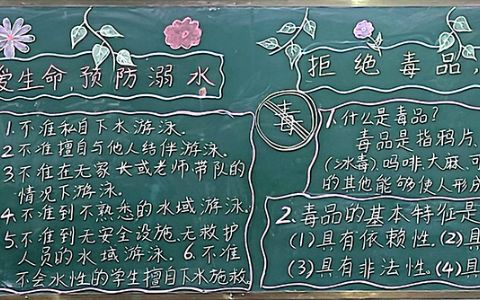 爱生命,预防溺水
1.不准私自下水游泳.
2.不准擅自与他人结伴游泳.
3.不准在无家长或老师带队的
情况下游泳.
4.不准到不熟悉的水域游泳.
5.不准到无安全设施、无救护
人员的水域游泳.6.不准
不会水性的学生擅自下水施救.
拒绝毒品,
毒
1.什么是毒品?
毒品是指鸦片、
(冰毒)、吗啡、大麻、可
的其他能够使人形成
2.毒品的基本特征是
(1)具有依赖性.(2)具
(3)具有非法性.(4)具